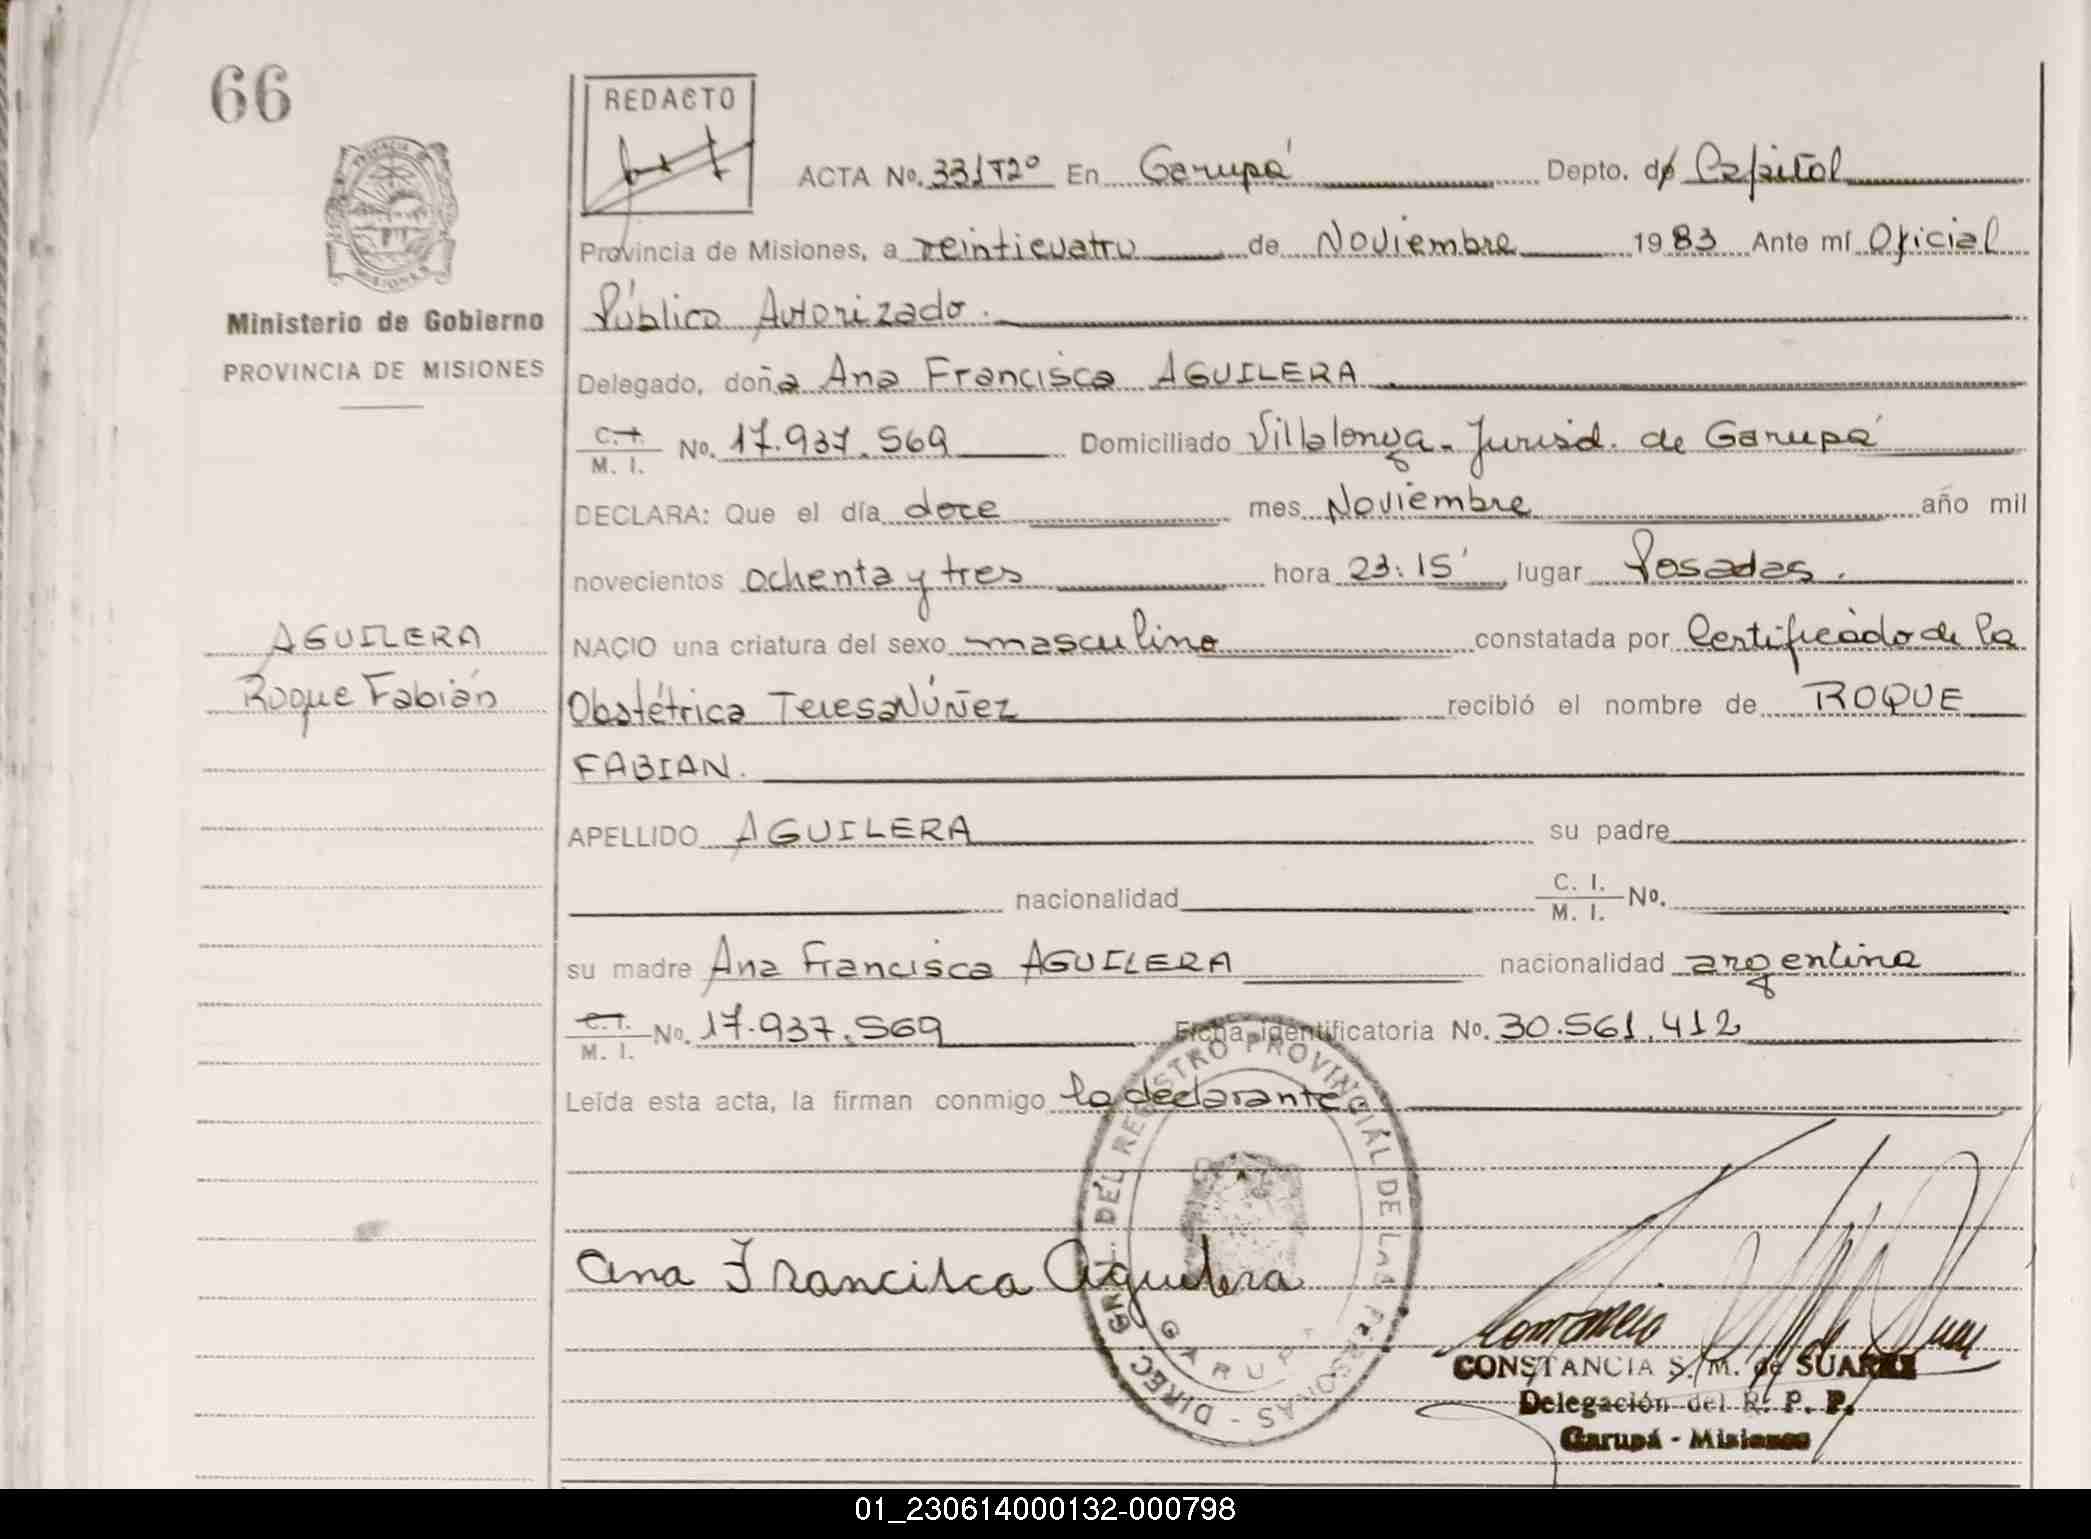 66
REDACTO
ACTA No. 331T2º En Garupá Depto. de Capital
Provincia de Misiones, a veinticuatro de Noviembre 1983 Ante mí Oficial
Público Autorizado.
Ministerio de Gobierno
PROVINCIA DE MISIONES
Delegado, doña Ana Francisca AGUILERA
C. I.
M. I. No. 17.937.569 Domiciliado Villalonga - Jurisd. de Garupá
DECLARA: Que el día doce mes Noviembre año mil
novecientos ochenta y tres hora 23:15' lugar Posadas.
AGUILERA
Roque Fabián
NACIO una criatura del sexo masculino constatada por Certificado de la
Obstétrica Teresa Núñez recibió el nombre de ROQUE
FABIAN.
APELLIDO AGUILERA su padre
nacionalidad C. I.
M. I. No.
su madre Ana Francisca AGUILERA nacionalidad argentina
C. I.
M. I. No. 17.937.569 Ficha identificatoria No. 30.561.412
Leída esta acta, la firman conmigo la declarante
DIREC. GRAL. DEL REGISTRO PROVINCIAL DE LAS PERSONAS -
GARUPA
Ana Francisca Aguilera
CONSTANCIA S. M. de SUAREZ
Delegación del R. P. P.
Garupá - Misiones
01_230614000132-000798